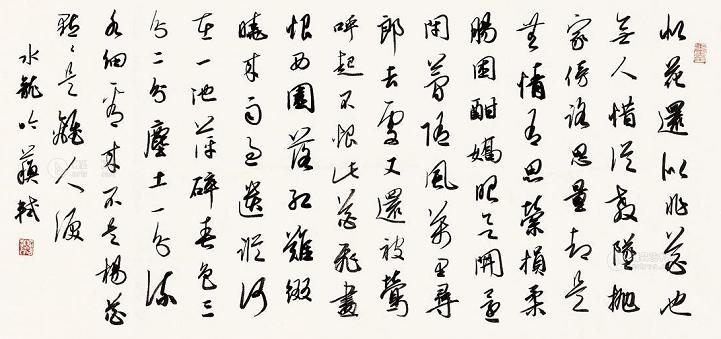 似花還似非花也
無人惜從教墜拋
家傍路思量却是
無情有思縈損柔
腸困酣嬌眼欲開還
閉夢隨風萬里尋
郎去處又還被鶯
呼起不恨此花飛盡
恨西園落紅難綴
曉來雨過遺蹤何
在一池萍碎春色三
分二分塵土一分流
水細看來不是楊花
點點是離人淚
水龍吟 蘇軾